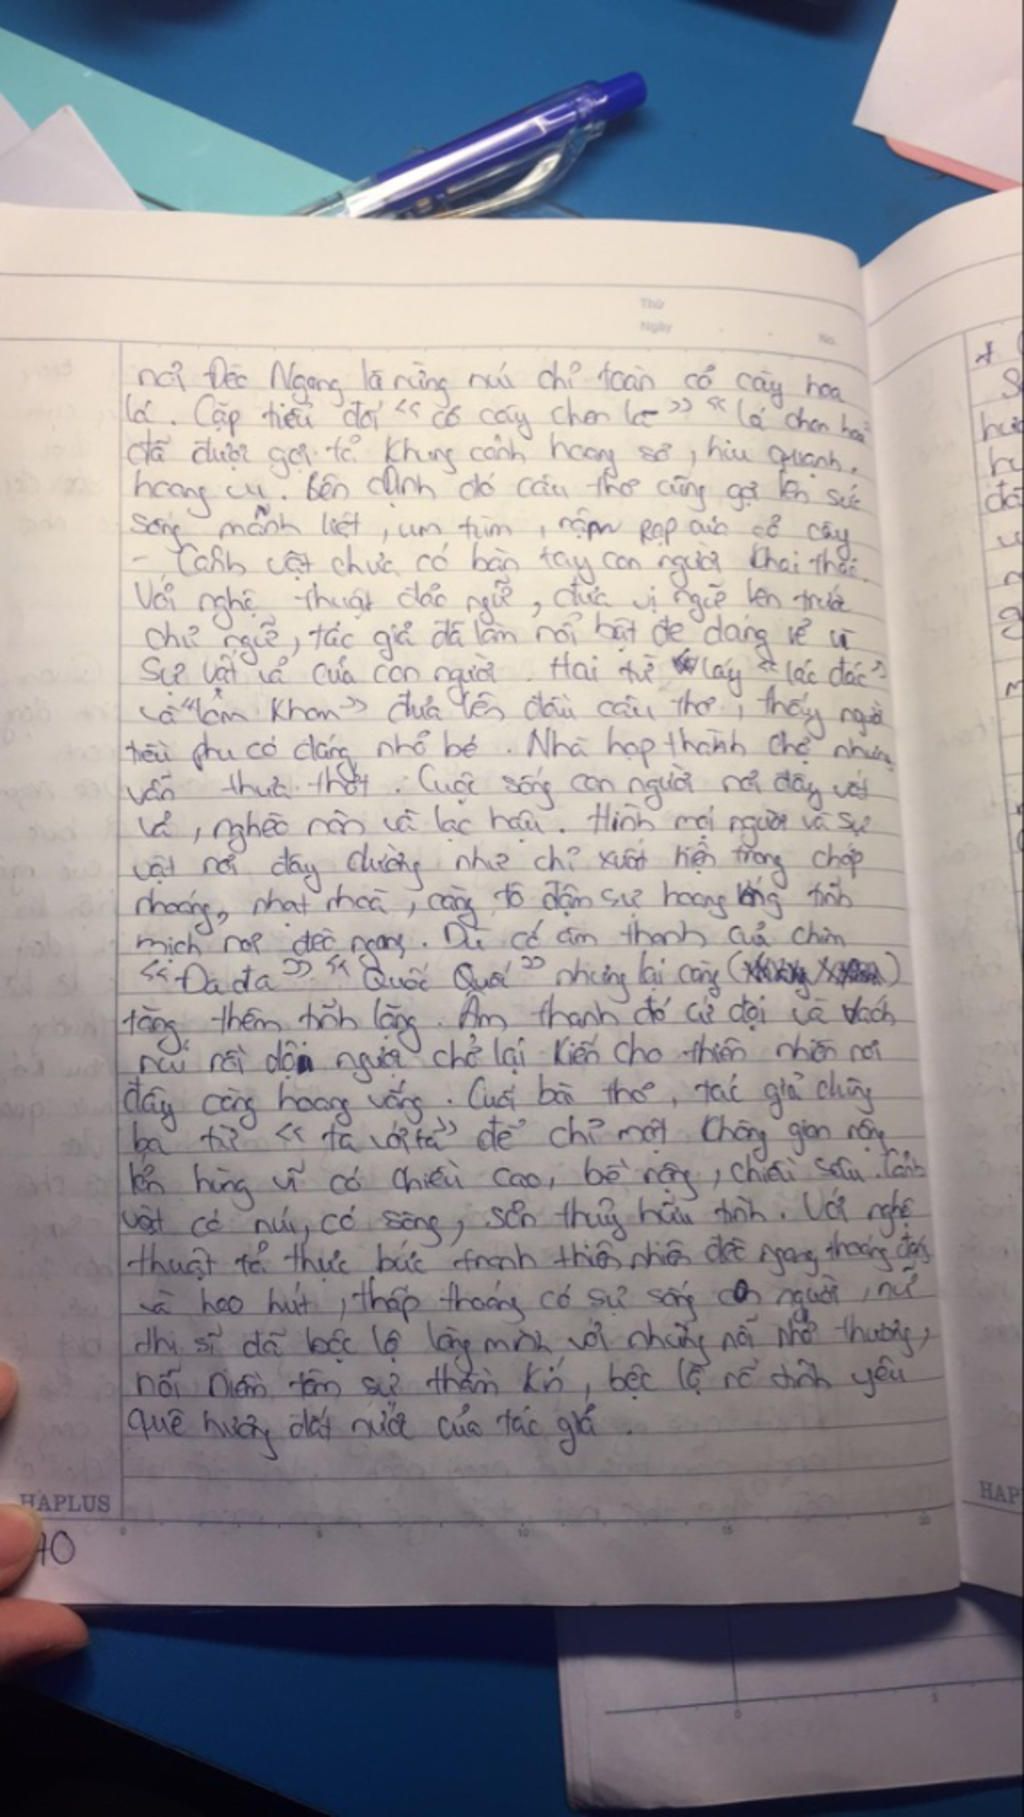 Thứ
Ngày
No.
nơi Đèo Ngang là rừng núi chỉ toàn cỏ cây hoa
lá. Cặp tiểu đối "cỏ cây chen lá" "lá chen hoa"
đã được gợi tả khung cảnh hoang sơ, hiu quạnh,
hoang vu. Bên cạnh đó câu thơ cũng gợi lên sức
sống mãnh liệt, um tùm, rậm rạp của cỏ cây
- Cảnh vật chưa có bàn tay con người khai thác.
Với nghệ thuật đảo ngữ, đưa vị ngữ lên trước
chủ ngữ, tác giả đã làm nổi bật để dáng vẻ và
sự vất vả của con người. Hai từ láy "lác đác"
và "lom khom" đưa lên đầu câu thơ, thấy người
tiều phu có dáng nhỏ bé. Nhà họp thành chợ nhưng
vẫn thưa thớt. Cuộc sống con người nơi đây vất
vả, nghèo nàn và lạc hậu. Hình mọi người và sự
vật nơi đây dường như chỉ xuất hiện trong chớp
nhoáng, nhạt nhoà, càng tô đậm sự hoang tĩnh
mịch nơi đèo ngang. Dù có âm thanh của chim
"Đa đa" "Quốc Quốc" nhưng lại càng
tăng thêm tĩnh lặng. Âm thanh đó cứ dội và vách
núi rồi dội ngược chở lại kiến cho thiên nhiên nơi
đây càng hoang vắng. Cuối bài thơ, tác giả dùng
ba từ "ta với ta" để chỉ một không gian rộng
lớn hùng vĩ có chiều cao, bề rộng, chiều sâu. Cảnh
vật có núi, có sông, sơn thuỷ hữu tình. Với nghệ
thuật tả thực bức tranh thiên nhiên đèo ngang thoáng đãng
và heo hút, thấp thoáng có sự sống con người, nữ
thi sĩ đã bộc lộ lòng mình với những nỗi nhớ thương,
nỗi niềm tâm sự thầm kín, bộc lộ rõ tình yêu
quê hương đất nước của tác giả.
HAPLUS
0 5 10 15 20
HAP
0 5